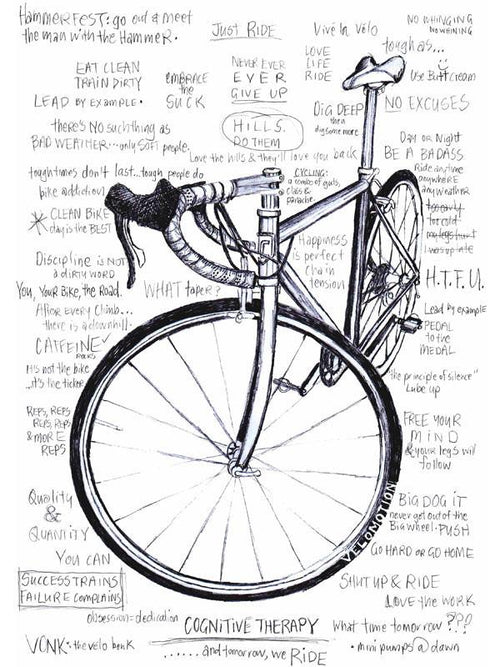 HAMMERFEST: go out & meet
the man with the HAMMER.
JUST RIDE
Vive le Velo
NO WHINGING
NO WHINING
LOVE
LIFE
RIDE
toughas...
EAT CLEAN
TRAIN DIRTY
EMBRACE
the
SUCK
NEVER EVER
EVER
GIVE UP
Use Butt Cream
LEAD by EXAMPLE.
DIG DEEP
then
dig some more
NO EXCUSES
there's NO such thing as
BAD WEATHER...only SOFT people.
HILLS.
DO THEM
Love the hills & they'll love you back
Day or Night
BE A BADASS
tough times don't last...tough people do
bike addiction
CYCLING:
a combo of guts,
class &
panache
Ride anytime
anywhere
any weather
too early
too cold
my legs hurt
CLEAN BIKE
day is the BEST
Happiness
is perfect
chain
tension
Discipline is NOT
a DIRTY WORD
H.T.F.U.
You, Your Bike, the Road.
WHAT taper?
After every climb...
there is a downhill.
Lead by example
PEDAL
to the
MEDAL
CAFFEINE
ROCKS
It's not the bike
..it's the ticker
"the principle of silence"
Lube up
REPS, REPS
REPS, REPS
& MORE
REPS
FREE YOUR
MIND
& your legs will
follow
Quality
&
QUANTITY
BIG DOG iT
never get out of the
Big wheel. PUSH
VELOMOTION
GO HARD or GO HOME
YOU CAN
SUCCESS TRAINS
FAILURE COMPLAINS
SHUT UP & RIDE
LOVE the WORK
obsession=dedication
COGNITIVE THERAPY
what time tomorrow ???
VONK: the velo bonk
......and tomorrow, we RIDE
• mini pumps @ dawn